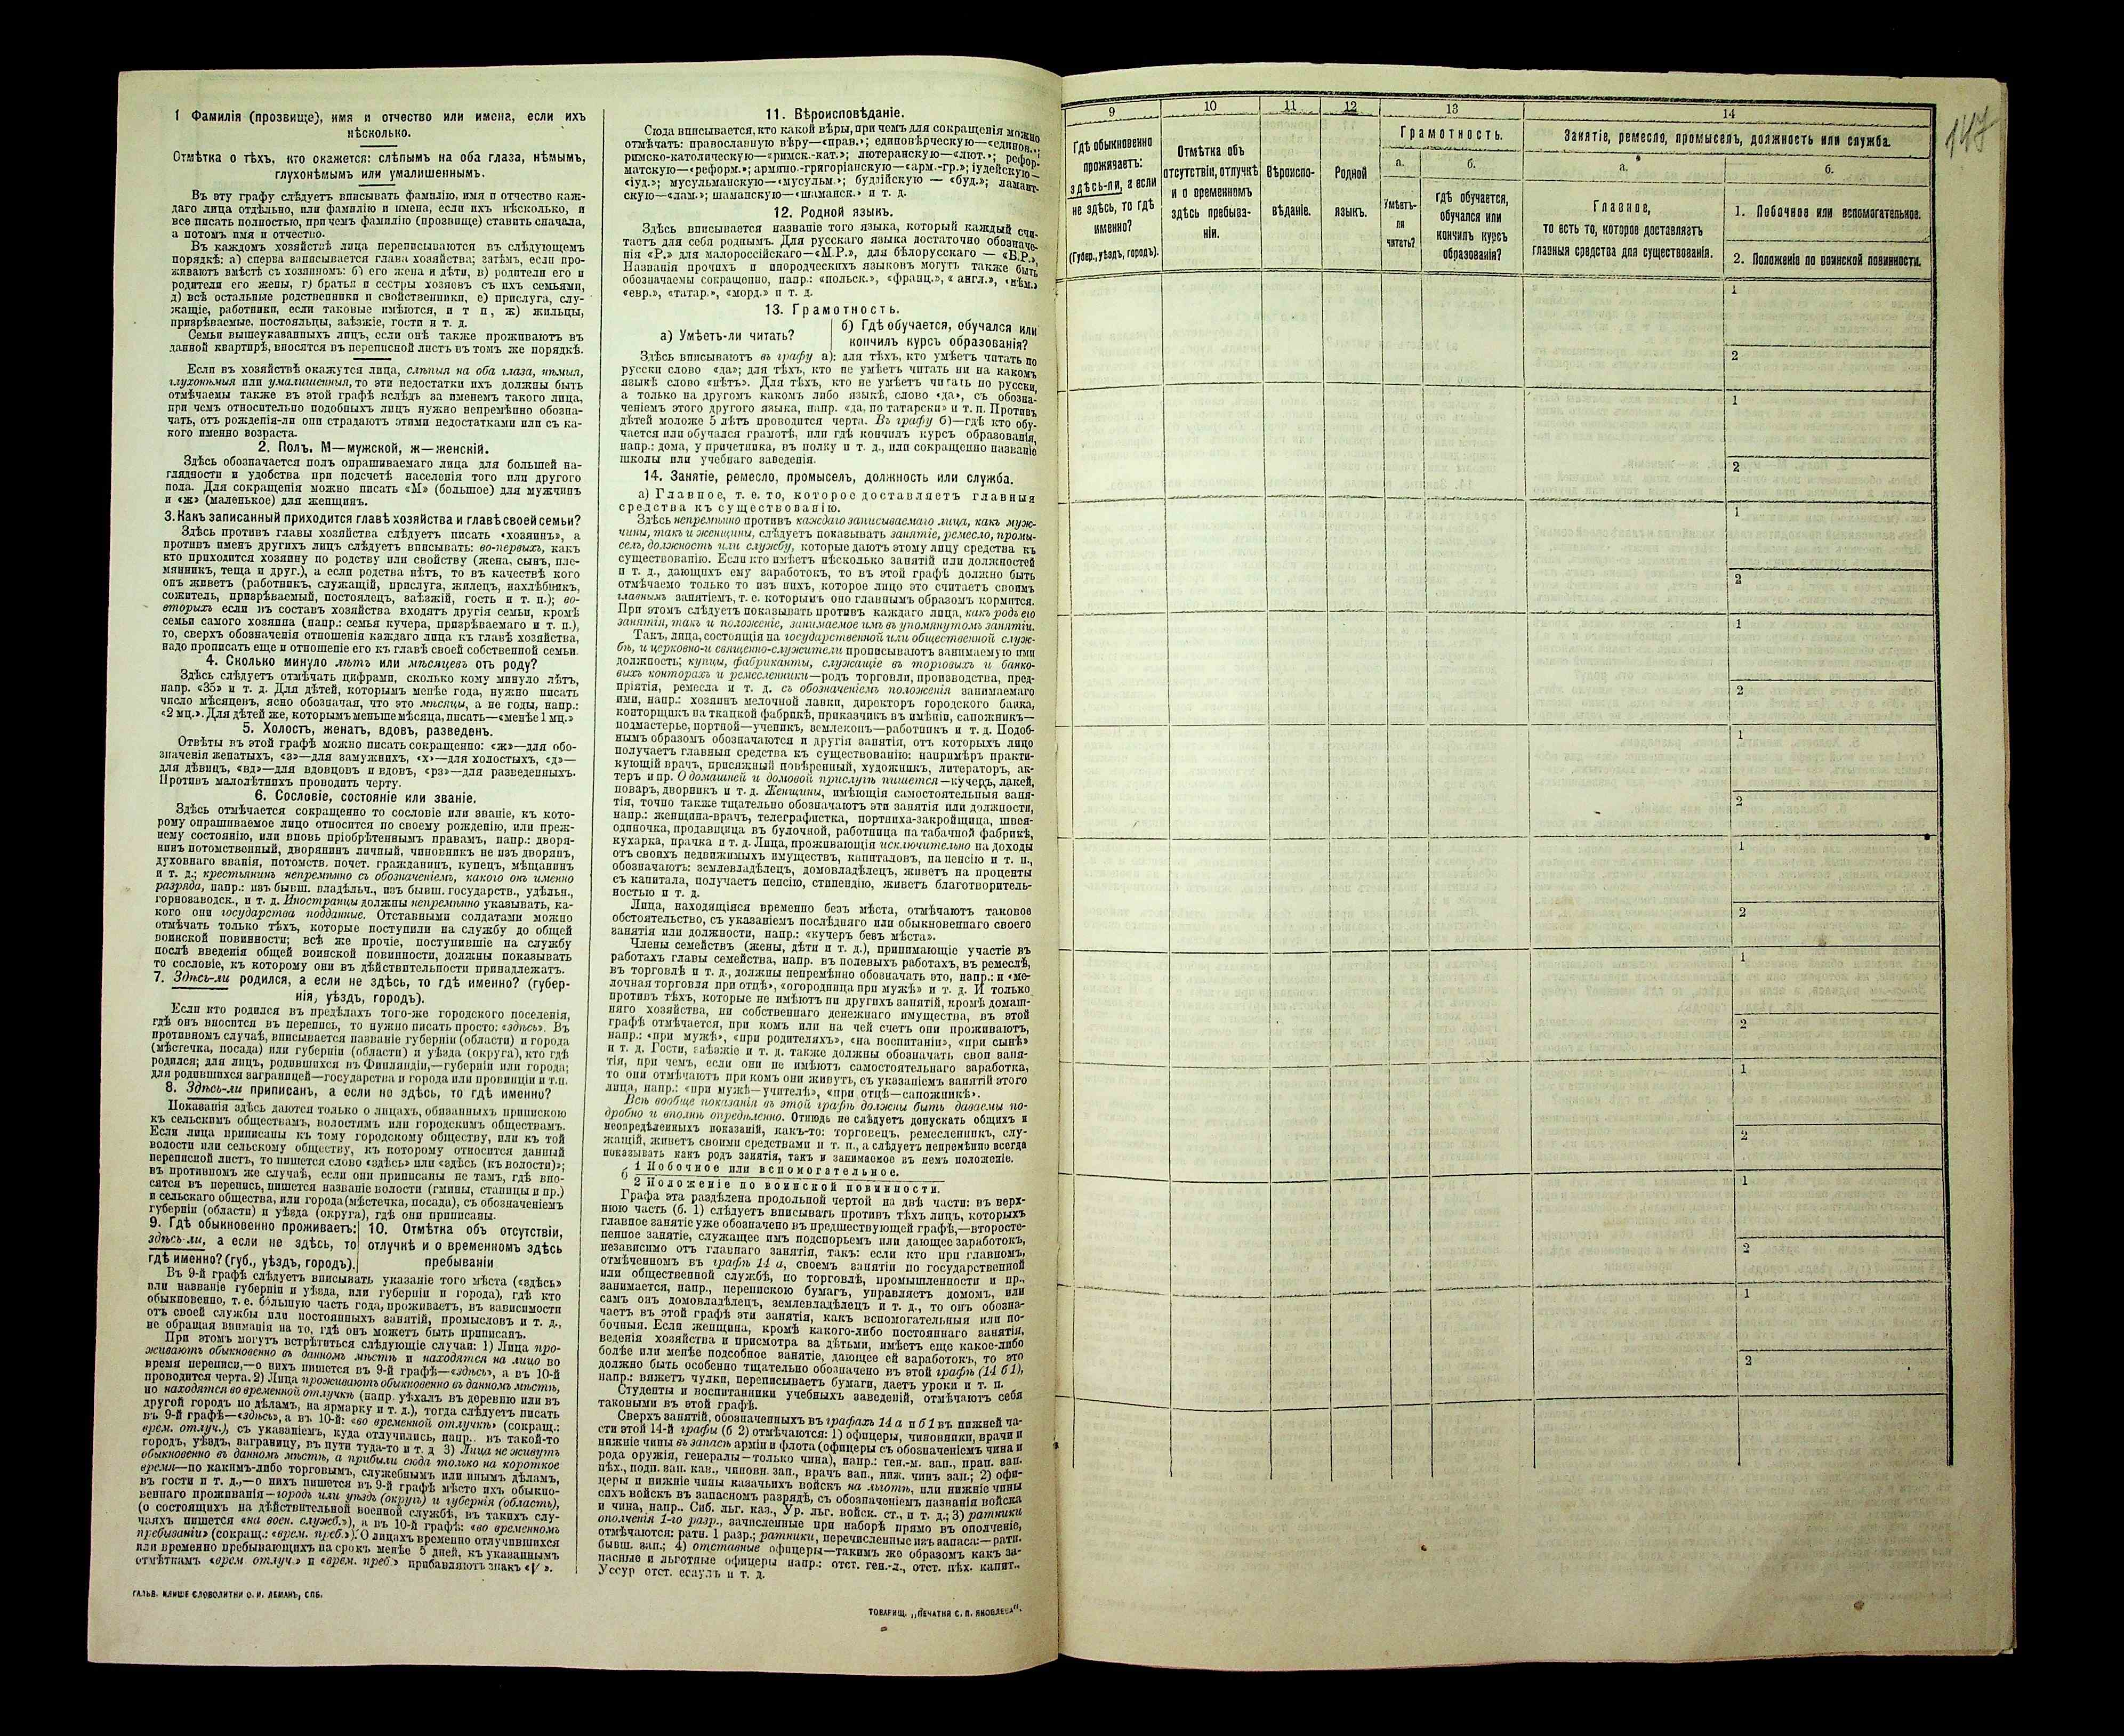 1 Фамилія (прозвище), имя и отчество или имена, если ихъ
нѣсколько.
Отмѣтка о тѣхъ, кто окажется: слѣпымъ на оба глаза, нѣмымъ,
глухонѣмымъ или умалишеннымъ.
Въ эту графу слѣдуетъ вписывать фамилію, имя и отчество каж-
даго лица отдѣльно, или фамилію и имена, если ихъ нѣсколько, и
все писать полностью, при чемъ фамилію (прозвище) ставить сначала,
а потомъ имя и отчество.
Въ каждомъ хозяйствѣ лица переписываются въ слѣдующемъ
порядкѣ: а) сперва записывается глава хозяйства; затѣмъ, если про-
живаютъ вмѣстѣ съ хозяиномъ: б) его жена и дѣти, в) родители его и
родители его жены, г) братья и сестры хозяевъ съ ихъ семьями,
д) всѣ остальные родственники и свойственники, е) прислуга, слу-
жащіе, работники, если таковые имѣются, и т п, ж) жильцы,
призрѣваемые, постояльцы, заѣзжіе, гости и т. д.
Семьи вышеуказанныхъ лицъ, если онѣ также проживаютъ въ
данной квартирѣ, вносятся въ переписной листъ въ томъ же порядкѣ.
Если въ хозяйствѣ окажутся лица, слѣпыя на оба глаза, нѣмыя,
глухонѣмыя или умалишенныя, то эти недостатки ихъ должны быть
отмѣчаемы также въ этой графѣ вслѣдъ за именемъ такого лица,
при чемъ относительно подобныхъ лицъ нужно непремѣнно обозна-
чать, отъ рожденія-ли они страдаютъ этими недостатками или съ ка-
кого именно возраста.
2. Полъ. М—мужской, ж—женскій.
Здѣсь обозначается полъ опрашиваемаго лица для большей на-
глядности и удобства при подсчетѣ населенія того или другого
пола. Для сокращенія можно писать «М» (большое) для мужчинъ
и «ж» (маленькое) для женщинъ.
3. Какъ записанный приходится главѣ хозяйства и главѣ своей семьи?
Здѣсь противъ главы хозяйства слѣдуетъ писать «хозяинъ», а
противъ именъ другихъ лицъ слѣдуетъ вписывать: во-первыхъ, какъ
кто приходится хозяину по родству или свойству (жена, сынъ, пле-
мянникъ, теща и друг.), а если родства нѣтъ, то въ качествѣ кого
онъ живетъ (работникъ, служащій, прислуга, жилецъ, нахлѣбникъ,
сожитель, призрѣваемый, постоялецъ, заѣзжій, гость и т. п.); во-
вторыхъ если въ составъ хозяйства входятъ другія семьи, кромѣ
семьи самого хозяина (напр.: семья кучера, призрѣваемаго и т. п.),
то, сверхъ обозначенія отношенія каждаго лица къ главѣ хозяйства,
надо прописать еще и отношеніе его къ главѣ своей собственной семьи.
4. Сколько минуло лѣтъ или мѣсяцевъ отъ роду?
Здѣсь слѣдуетъ отмѣчать цифрами, сколько кому минуло лѣтъ,
напр. «35» и т. д. Для дѣтей, которымъ менѣе года, нужно писать
число мѣсяцевъ, ясно обозначая, что это мѣсяцы, а не годы, напр.:
«2 мц.». Для дѣтей же, которымъ меньше мѣсяца, писать—«менѣе 1 мц.»
5. Холостъ, женатъ, вдовъ, разведенъ.
Отвѣты въ этой графѣ можно писать сокращенно: «ж»—для обо-
значенія женатыхъ, «з»—для замужнихъ, «х»—для холостыхъ, «д»—
для дѣвицъ, «вд»—для вдовцовъ и вдовъ, «рз»—для разведенныхъ.
Противъ малолѣтнихъ проводить черту.
6. Сословіе, состояніе или званіе.
Здѣсь отмѣчается сокращенно то сословіе или званіе, къ кото-
рому опрашиваемое лицо относится по своему рожденію, или преж-
нему состоянію, или вновь пріобрѣтеннымъ правамъ, напр.: дворя-
нинъ потомственный, дворянинъ личный, чиновникъ не изъ дворянъ,
духовнаго званія, потомств. почет. гражданинъ, купецъ, мѣщанинъ
и т. д.; крестьянинъ непремѣнно съ обозначеніемъ, какого онъ именно
разряда, напр.: изъ бывш. владѣльч., изъ бывш. государств., удѣльн.,
горнозаводск., и т. д. Иностранцы должны непремѣнно указывать, ка-
кого они государства подданные. Отставными солдатами можно
отмѣчать только тѣхъ, которые поступили на службу до общей
воинской повинности; всѣ же прочіе, поступившіе на службу
послѣ введенія общей воинской повинности, должны показывать
то сословіе, къ которому они въ дѣйствительности принадлежатъ.
7. Здѣсь-ли родился, а если не здѣсь, то гдѣ именно? (губер-
нія, уѣздъ, городъ).
Если кто родился въ предѣлахъ того-же городского поселенія,
гдѣ онъ вносится въ перепись, то нужно писать просто: «здѣсь». Въ
противномъ случаѣ, вписывается названіе губерніи (области) и города
(мѣстечка, посада) или губерніи (области) и уѣзда (округа), кто гдѣ
родился; для лицъ, родившихся въ Финляндіи,—губерніи или города;
для родившихся заграницей—государства и города или провинціи и т.п.
8. Здѣсь-ли приписанъ, а если не здѣсь, то гдѣ именно?
Показанія здѣсь даются только о лицахъ, обязанныхъ припискою
къ сельскимъ обществамъ, волостямъ или городскимъ обществамъ.
Если лица приписаны къ тому городскому обществу, или къ той
волости или сельскому обществу, къ которому относится данный
переписной листъ, то пишется слово «здѣсь» или «здѣсь (къ волости)»;
въ противномъ же случаѣ, если они приписаны не тамъ, гдѣ вно-
сятся въ перепись, пишется названіе волости (гмины, станицы и пр.)
и сельскаго общества, или города (мѣстечка, посада), съ обозначеніемъ
губерніи (области) и уѣзда (округа), гдѣ они приписаны.
9. Гдѣ обыкновенно проживаетъ:
здѣсь-ли, а если не здѣсь, то
гдѣ именно? (губ., уѣздъ, городъ).
10. Отмѣтка объ отсутствіи,
отлучкѣ и о временномъ здѣсь
пребываніи
Въ 9-й графѣ слѣдуетъ вписывать указаніе того мѣста («здѣсь»
или названіе губерніи и уѣзда, или губерніи и города), гдѣ кто
обыкновенно, т. е. бо́льшую часть года, проживаетъ, въ зависимости
отъ своей службы или постоянныхъ занятій, промысловъ и т. д.,
не обращая вниманія на то, гдѣ онъ можетъ быть приписанъ.
При этомъ могутъ встрѣтиться слѣдующіе случаи: 1) Лица про-
живаютъ обыкновенно въ данномъ мѣстѣ и находятся на лицо во
время переписи,—о нихъ пишется въ 9-й графѣ—«здѣсь», а въ 10-й
проводится черта. 2) Лица проживаютъ обыкновенно въ данномъ мѣстѣ,
но находятся во временной отлучкѣ (напр. уѣхалъ въ деревню или въ
другой городъ по дѣламъ, на ярмарку и т. д.), тогда слѣдуетъ писать
въ 9-й графѣ—«здѣсь», а въ 10-й: «во временной отлучкѣ» (сокращ.:
врем. отлуч.), съ указаніемъ, куда отлучились, напр.. въ такой-то
городъ, уѣздъ, заграницу, въ пути туда-то и т. д 3) Лица не живутъ
обыкновенно въ данномъ мѣстѣ, а прибыли сюда только на короткое
время—по какимъ-либо торговымъ, служебнымъ или инымъ дѣламъ,
въ гости и т. д.,—о нихъ пишется въ 9-й графѣ мѣсто ихъ обыкно-
веннаго проживанія—городъ или уѣздъ (округъ) и губернія (область),
(о состоящихъ на дѣйствительной военной службѣ, въ такихъ слу-
чаяхъ пишется «на воен. служб.»), а въ 10-й графѣ: «во временномъ
пребываніи» (сокращ.: «врем. преб.»). О лицахъ временно отлучившихся
или временно пребывающихъ на срокъ менѣе 5 дней, къ указаннымъ
отмѣткамъ «врем. отлуч.» и «врем. преб.» прибавляютъ знакъ «V».
ГАЛЬВ. КЛИШЕ СЛОВОЛИТНИ О. И. ЛЕМАНЪ, СПБ.
11. Вѣроисповѣданіе.
Сюда вписывается, кто какой вѣры, при чемъ для сокращенія можно
отмѣчать: православную вѣру—«прав.»; единовѣрческую—«единов.»;
римско-католическую—«римск.-кат.»; лютеранскую—«лют.»; рефор-
матскую—«реформ.»; армяно-григоріанскую—«арм.-гр.»; іудейскую—
«іуд.»; мусульманскую—«мусульм.»; буддійскую — «буд.»; ламаит-
скую—«лам.»; шаманскую—«шаманск.» и т. д.
12. Родной языкъ.
Здѣсь вписывается названіе того языка, который каждый счи-
таетъ для себя роднымъ. Для русскаго языка достаточно обозначе-
нія «Р.» для малороссійскаго—«М.Р.», для бѣлорусскаго — «Б.Р.».
Названія прочихъ и инородческихъ языковъ могутъ также быть
обозначаемы сокращенно, напр.: «польск.», «франц.», «англ.», «нѣм.»
«евр.», «татар.», «морд.» и т. д.
13. Грамотность.
а) Умѣетъ-ли читать?
б) Гдѣ обучается, обучался или
кончилъ курсъ образованія?
Здѣсь вписываютъ въ графу а): для тѣхъ, кто умѣетъ читать по
русски слово «да»; для тѣхъ, кто не умѣетъ читать ни на какомъ
языкѣ слово «нѣтъ». Для тѣхъ, кто не умѣетъ читать по русски,
а только на другомъ какомъ либо языкѣ, слово «да», съ обозна-
ченіемъ этого другого языка, напр. «да, по татарски» и т. п. Противъ
дѣтей моложе 5 лѣтъ проводится черта. Въ графу б)—гдѣ кто обу-
чается или обучался грамотѣ, или гдѣ кончилъ курсъ образованія,
напр.: дома, у причетника, въ полку и т. д., или сокращенно названіе
школы или учебнаго заведенія.
14. Занятіе, ремесло, промыселъ, должность или служба.
а) Главное, т. е. то, которое доставляетъ главныя
средства къ существованію.
Здѣсь непремѣнно противъ каждаго записываемаго лица, какъ муж-
чины, такъ и женщины, слѣдуетъ показывать занятіе, ремесло, промы-
селъ, должность или службу, которые даютъ этому лицу средства къ
существованію. Если кто имѣетъ нѣсколько занятій или должностей
и т. д., дающихъ ему заработокъ, то въ этой графѣ должно быть
отмѣчаемо только то изъ нихъ, которое лицо это считаетъ своимъ
главнымъ занятіемъ, т. е. которымъ оно главнымъ образомъ кормится.
При этомъ слѣдуетъ показывать противъ каждаго лица, какъ родъ его
занятія, такъ и положеніе, занимаемое имъ въ упомянутомъ занятіи.
Такъ, лица, состоящія на государственной или общественной служ-
бѣ, и церковно-и священно-служители прописываютъ занимаемую ими
должность; купцы, фабриканты, служащіе въ торговыхъ и банко-
выхъ конторахъ и ремесленники—родъ торговли, производства, пред-
пріятія, ремесла и т. д. съ обозначеніемъ положенія занимаемаго
ими, напр.: хозяинъ мелочной лавки, директоръ городского банка,
конторщикъ на ткацкой фабрикѣ, приказчикъ въ имѣніи, сапожникъ—
подмастерье, портной—ученикъ, землекопъ—работникъ и т. д. Подоб-
нымъ образомъ обозначаются и другія занятія, отъ которыхъ лицо
получаетъ главныя средства къ существованію: напримѣръ практи-
кующій врачъ, присяжный повѣренный, художникъ, литераторъ, ак-
теръ и пр. О домашней и домовой прислугѣ пишется—кучеръ, лакей,
поваръ, дворникъ и т. д. Женщины, имѣющія самостоятельныя заня-
тія, точно также тщательно обозначаютъ эти занятія или должности,
напр.: женщина-врачъ, телеграфистка, портниха-закройщица, швея-
одиночка, продавщица въ булочной, работница на табачной фабрикѣ,
кухарка, прачка и т. д. Лица, проживающія исключительно на доходы
отъ своихъ недвижимыхъ имуществъ, капиталовъ, на пенсію и т. п.,
обозначаютъ: землевладѣлецъ, домовладѣлецъ, живетъ на проценты
съ капитала, получаетъ пенсію, стипендію, живетъ благотворитель-
ностью и т. д.
Лица, находящіяся временно безъ мѣста, отмѣчаютъ таковое
обстоятельство, съ указаніемъ послѣдняго или обыкновеннаго своего
занятія или должности, напр.: «кучеръ безъ мѣста».
Члены семействъ (жены, дѣти и т. д.), принимающіе участіе въ
работахъ главы семейства, напр. въ полевыхъ работахъ, въ ремеслѣ,
въ торговлѣ и т. д., должны непремѣнно обозначать это, напр.: и «ме-
лочная торговля при отцѣ», «огородница при мужѣ» и т. д. И только
противъ тѣхъ, которые не имѣютъ ни другихъ занятій, кромѣ домаш-
няго хозяйства, ни собственнаго денежнаго имущества, въ этой
графѣ отмѣчается, при комъ или на чей счетъ они проживаютъ,
напр.: «при мужѣ», «при родителяхъ», «на воспитаніи», «при сынѣ»
и т. д. Гости, заѣзжіе и т. д. также должны обозначать свои заня-
тія, при чемъ, если они не имѣютъ самостоятельнаго заработка,
то они отмѣчаютъ при комъ они живутъ, съ указаніемъ занятій этого
лица, напр.: «при мужѣ—учителѣ», «при отцѣ—сапожникѣ».
Всѣ вообще показанія въ этой графѣ должны быть даваемы по-
дробно и вполнѣ опредѣленно. Отнюдь не слѣдуетъ допускать общихъ и
неопредѣленныхъ показаній, какъ-то: торговецъ, ремесленникъ, слу-
жащій, живетъ своими средствами и т. п., а слѣдуетъ непремѣнно всегда
показывать какъ родъ занятія, такъ и занимаемое въ немъ положеніе.
б 1 Побочное или вспомогательное.
2 Положеніе по воинской повинности.
Графа эта раздѣлена продольной чертой на двѣ части: въ верх-
нюю часть (б. 1) слѣдуетъ вписывать противъ тѣхъ лицъ, которыхъ
главное занятіе уже обозначено въ предшествующей графѣ,—второсте-
пенное занятіе, служащее имъ подспорьемъ или дающее заработокъ,
независимо отъ главнаго занятія, такъ: если кто при главномъ,
отмѣченномъ въ графѣ 14 а, своемъ занятіи по государственной
или общественной службѣ, по торговлѣ, промышленности и пр.,
занимается, напр., перепискою бумагъ, управляетъ домомъ, или
самъ онъ домовладѣлецъ, землевладѣлецъ и т. д., то онъ обозна-
чаетъ въ этой графѣ эти занятія, какъ вспомогательныя или по-
бочныя. Если женщина, кромѣ какого-либо постояннаго занятія,
веденія хозяйства и присмотра за дѣтьми, имѣетъ еще какое-либо
болѣе или менѣе подсобное занятіе, дающее ей заработокъ, то это
должно быть особенно тщательно обозначено въ этой графѣ (14 б 1),
напр.: вяжетъ чулки, переписываетъ бумаги, даетъ уроки и т. п.
Студенты и воспитанники учебныхъ заведеній, отмѣчаютъ себя
таковыми въ этой графѣ.
Сверхъ занятій, обозначенныхъ въ графахъ 14 а и б 1 въ нижней ча-
сти этой 14-й графы (б 2) отмѣчаются: 1) офицеры, чиновники, врачи и
нижніе чины въ запасѣ арміи и флота (офицеры съ обозначеніемъ чина и
рода оружія, генералы—только чина), напр.: ген.-м. зап., прап. зап.
пѣх., подп. зап. кав., чиновн. зап., врачъ зап., ниж. чинъ зап.; 2) офи-
церы и нижніе чины казачьихъ войскъ на льготѣ, или нижніе чины
сихъ войскъ въ запасномъ разрядѣ, съ обозначеніемъ названія войска
и чина, напр.. Сиб. льг. каз., Ур. льг. войск. ст., и т. д.; 3) ратники
ополченія 1-го разр., зачисленные при наборѣ прямо въ ополченіе,
отмѣчаются: ратн. 1 разр.; ратники, перечисленные изъ запаса:—ратн.
бывш. зап.; 4) отставные офицеры—такимъ же образомъ какъ за-
пасные и льготные офицеры напр.: отст. ген.-л., отст. пѣх. капит..
Уссур отст. есаулъ и т. д.
ТОВАРИЩ. „ПЕЧАТНЯ С. П. ЯКОВЛЕВА“.
147
9
10
11
12
13
14
Гдѣ обыкновенно
проживаетъ:
здѣсь-ли, а если
не здѣсь, то гдѣ
именно?
(Губер., уѣздъ, городъ).
Отмѣтка объ
отсутствіи, отлучкѣ
и о временномъ
здѣсь пребыва-
ніи.
Вѣроиспо-
вѣданіе.
Родной
языкъ.
Грамотность.
а.
Умѣетъ-
ли
читать?
б.
гдѣ обучается,
обучался или
кончилъ курсъ
образованія?
Занятіе, ремесло, промыселъ, должность или служба.
а.
Главное,
то есть то, которое доставляетъ
главныя средства для существованія.
б.
1. Побочное или вспомогательное.
2. Положеніе по воинской повинности.
1
2
1
2
1
2
1
2
1
2
1
2
1
2
1
2
1
2
1
2